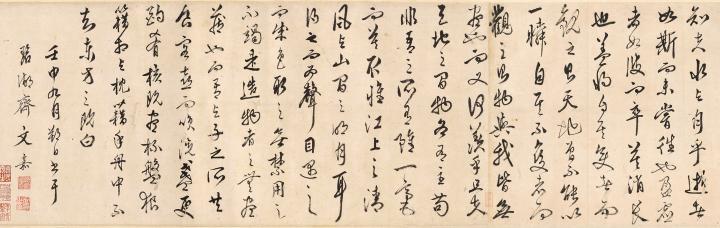 知夫水與月乎逝者
如斯而未嘗往也盈虛
者如彼而卒莫消長
也蓋將自其變者而
觀之則天地曾不能以
一瞬自其不變者而
觀之則物與我皆無
盡也而又何羨乎且夫
天地之間物各有主苟
非吾之所有雖一毫
而莫取惟江上之清
風與山間之明月耳
得之而為聲目遇之
而成色取之無禁用之
不竭是造物者之無盡
藏也而吾與子之所共
食客喜而笑洗盞更
酌肴核既盡杯盤狼
藉相與枕藉乎舟中不
知東方之既白
壬申九月朔日書于
湖齋文嘉